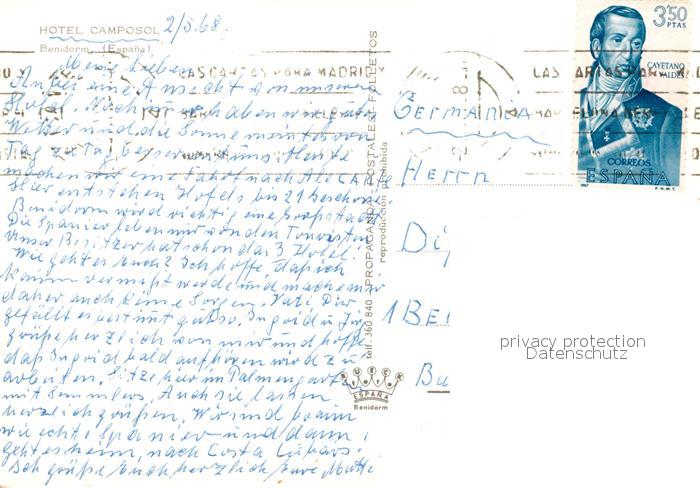 HOTEL CAMPOSOL 2/3.68.
Benidorm. (España)
Meine Lieben
Anbei eine Ansicht von unserem
Hotel. Noch haben wir
Wetter und die Sonne meint es von
Tag zu Tag besser uns. Heute
machen wir eine Fahrt nach Alecante
Hier entstehen Hotels bis 21 Geschoße
Benidorm wird richtig eine Großstadt
Die Spanier leben nur von den Touristen
Unser Besitzer hat schon das 3. Hotel!
Wie geht es Euch? Ich hoffe, daß ich
kaum vermißt werde und mache mir
daher auch keine Sorgen. Vati Dir
gefällt es bestimmt gut so. Ingrid u. Jörg
grüße herzlich von mir und hoffe
daß Ingrid bald aufhören wird zu
arbeiten. Sitze hier im Palmengarten
mit Semmlers. Auch sie lassen
herzlich grüßen. Wir sind braun
wie echte Spanier und dann
geht es heim, nach Costa
Ich grüße Euch herzlich Eure Mutti
PROPAGANDA - POSTALES - FOLLETOS
telf. 360 840
reproducción prohibida
RUECK
ESPAÑA
Benidorm
LAS CARTAS PARA MADRID
LAS CARTAS PARA
Germania
Herrn
Di
1 Be
Bu
3'50
PTAS
CAYETANO
VALDES
CORREOS
ESPAÑA
1967 F.N.M.T.
privacy protection
Datenschutz